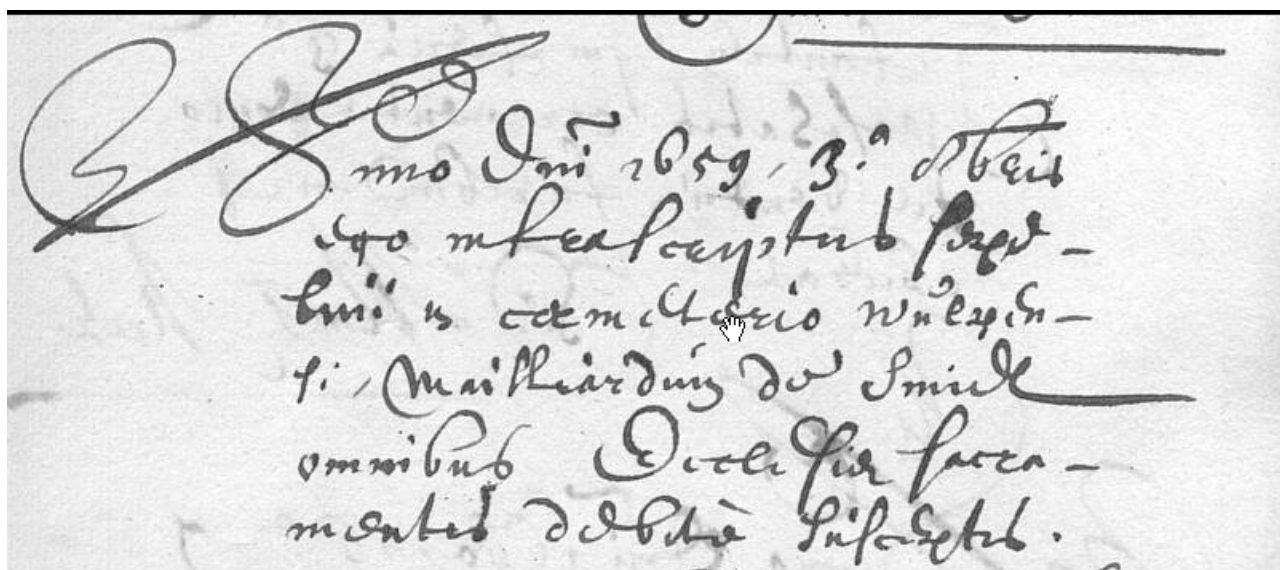 Anno Dni 1659, 3.a 8bris
ego infrascriptus sepe-
livi in coemeterio wulpen-
si, Mailliardum de Smidt
omnibus Ecclesiae sacra-
mentis debitè susceptis.